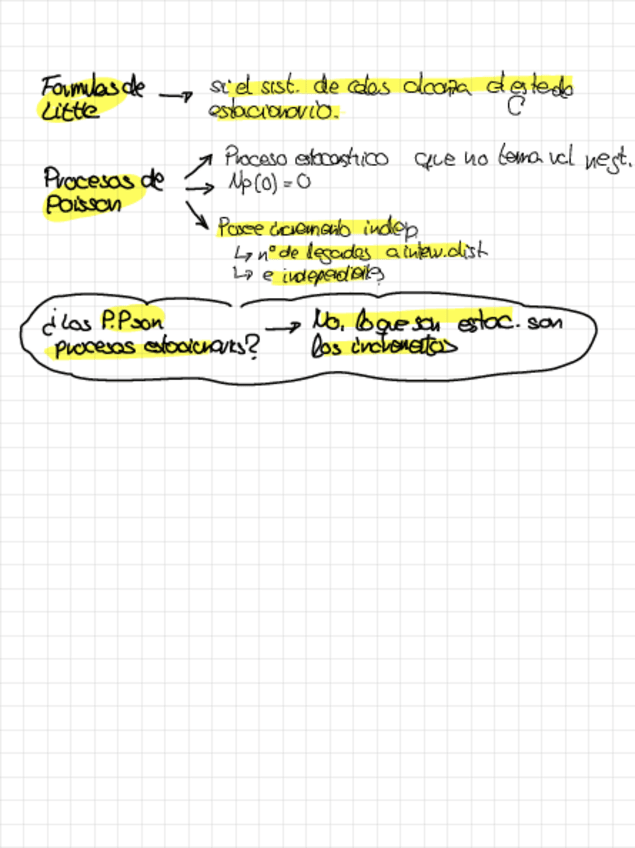 Formulas de → si el sist. de colas alcanza el estado
Little estacionario.
C
Proceso estocastico que no toma val negt.
Procesos de → Np(0) = 0
Poisson
Posee incremento indep
↳ nº de llegadas a interv. dist
↳ e independientes
¿Los P.P son → No, lo que son estac. son
procesos estacionarios? los incrementos